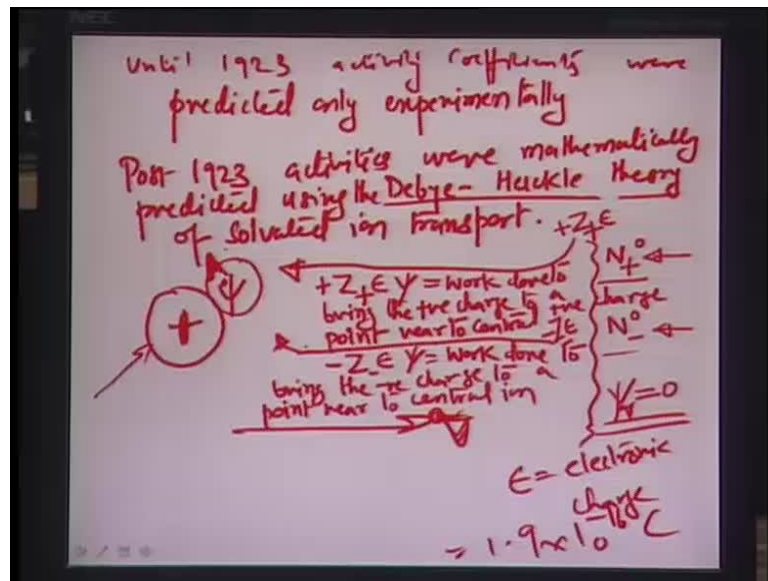 Until 1923 activity coefficients were
predicted only experimentally
Post 1923 activities were mathematically
predicted using the Debye-Huckle theory
of solvated ion transport.
+Z₊ϵ
+
ψ
+Z₊ϵψ = work done to
bring the +ve charge to a
point near to central +ve charge
-Zϵ
-Z₋ϵψ = work done to
bring the -ve charge to a
point near to central ion
N₊⁰
N₋⁰
ψ=0
ϵ = electronic
charge
= 1.9x10⁻¹⁶ C